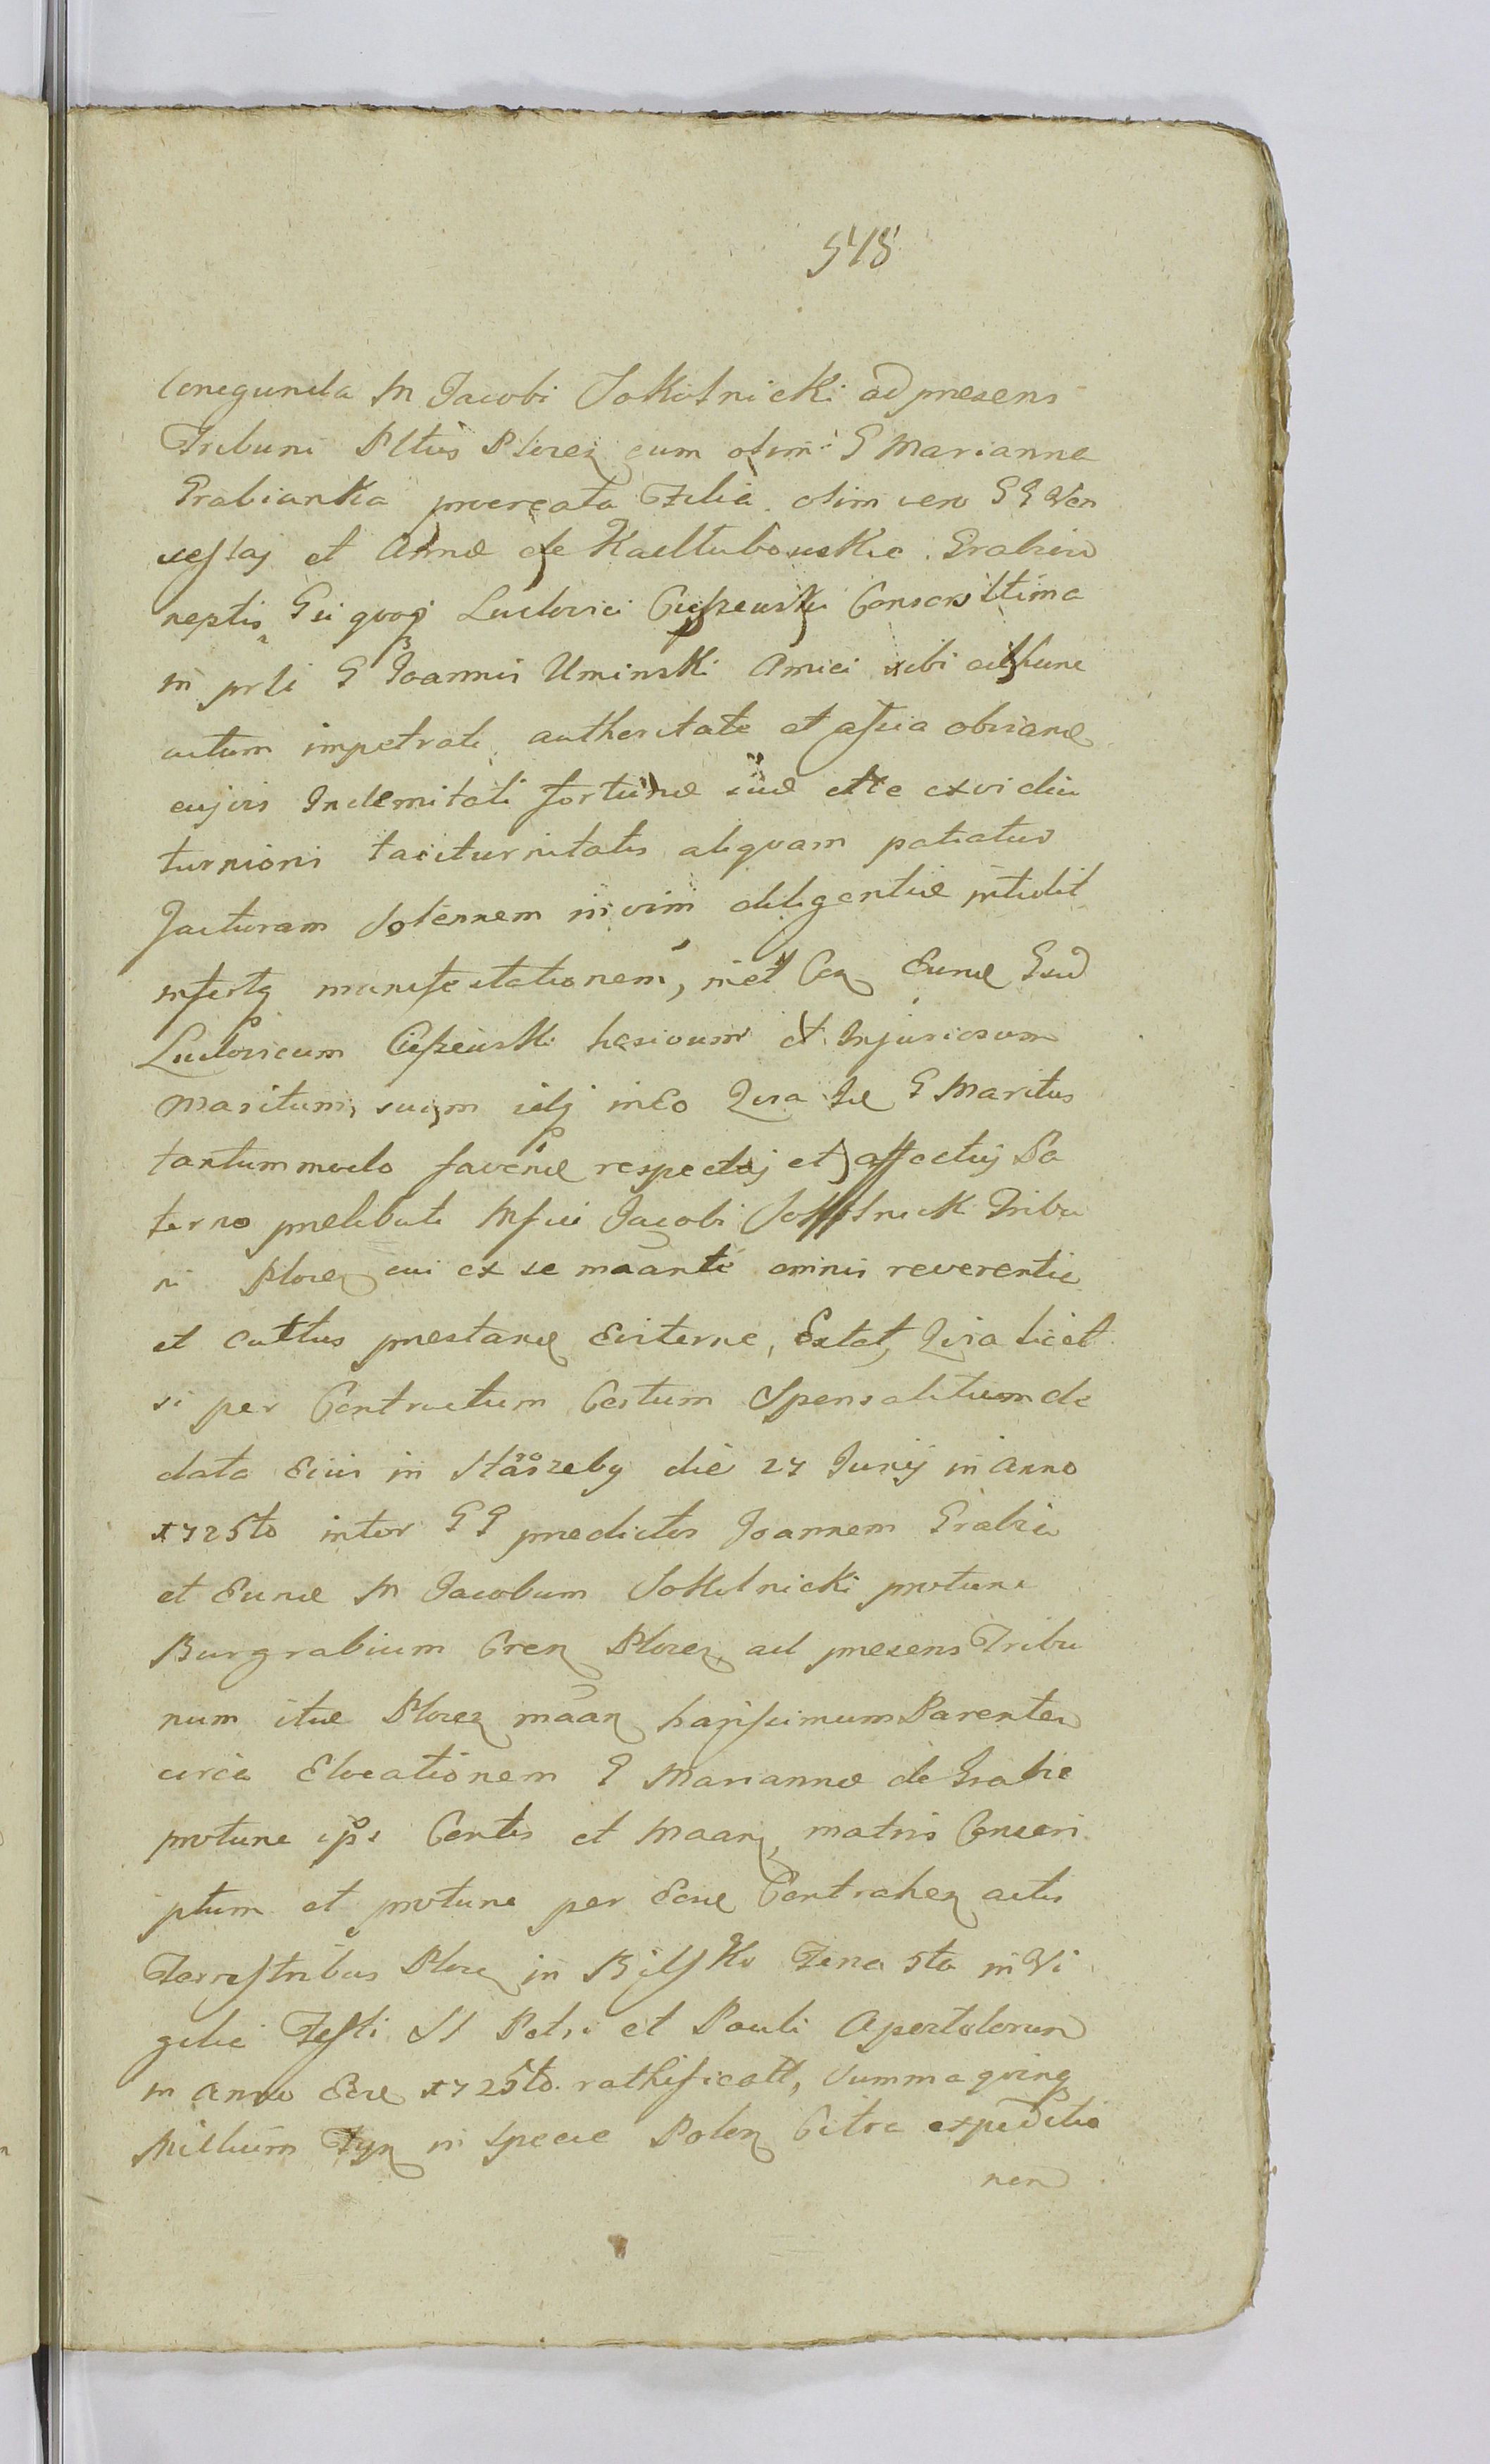 548
Conegunda M Jacobi Sokolnicki ad presens
Tribuni Pltus Plocen cum olim G Marianna
Grabianka procreata Filia olim vero GG Wen
ceslaj et Annæ de Kaeltubowskie Grabiu
neptis Gsi quoqj Ludovici Ciepzewski Consors Ltima
in prti G Joannis Uminski Amici sibi ad hunc
actum impetrati authoritate et assia obviane
cujvis Indemitati fortunæ suæ ette ex vi diu
turnioris taciturnitatis aliquam patiatur
Jacturam Solennem in vim diligentiæ intulit
infertq manifestationem, in et Con Eund Gsud
Ludovicum Ciepzewski læsivum et Injuriosum
Maritum, suum idqj in Eo Quia Id G Maritus
tantummodo favend respectuj et affectuj Pa
terno prelibati Mfici Jacobi Sokolnick Tribu
ni Plocen cui ex se maante omnis reverentie
et cultus prestand Eviterne, Extat, Quia licet
si per Contractum Certum Sponsalitium de
data Eius in Staszeby die 27 Junij in Anno
1725to inter GG predictos Joannem Grabiu
et Eund M Jacobum Sokolnicki protunc
Burgrabium Cren Plocen ad presens Tribu
num itid Plocen maan harissimum Parentem
circa Elocationem G Mariannæ de Grabie
protunc ipse Contis et Maan, matris Conscri
ptum et protunc per Eosd Contrahen actis
Terrestribus Ploce in Bielsko Feria 5ta in Vi
gilia Festi SS Petri et Pauli Apostolorum
in anno Eod 1725to rathificatt, Summa quinq
Millium Flyn in specie Polon Citra expeditio
nem